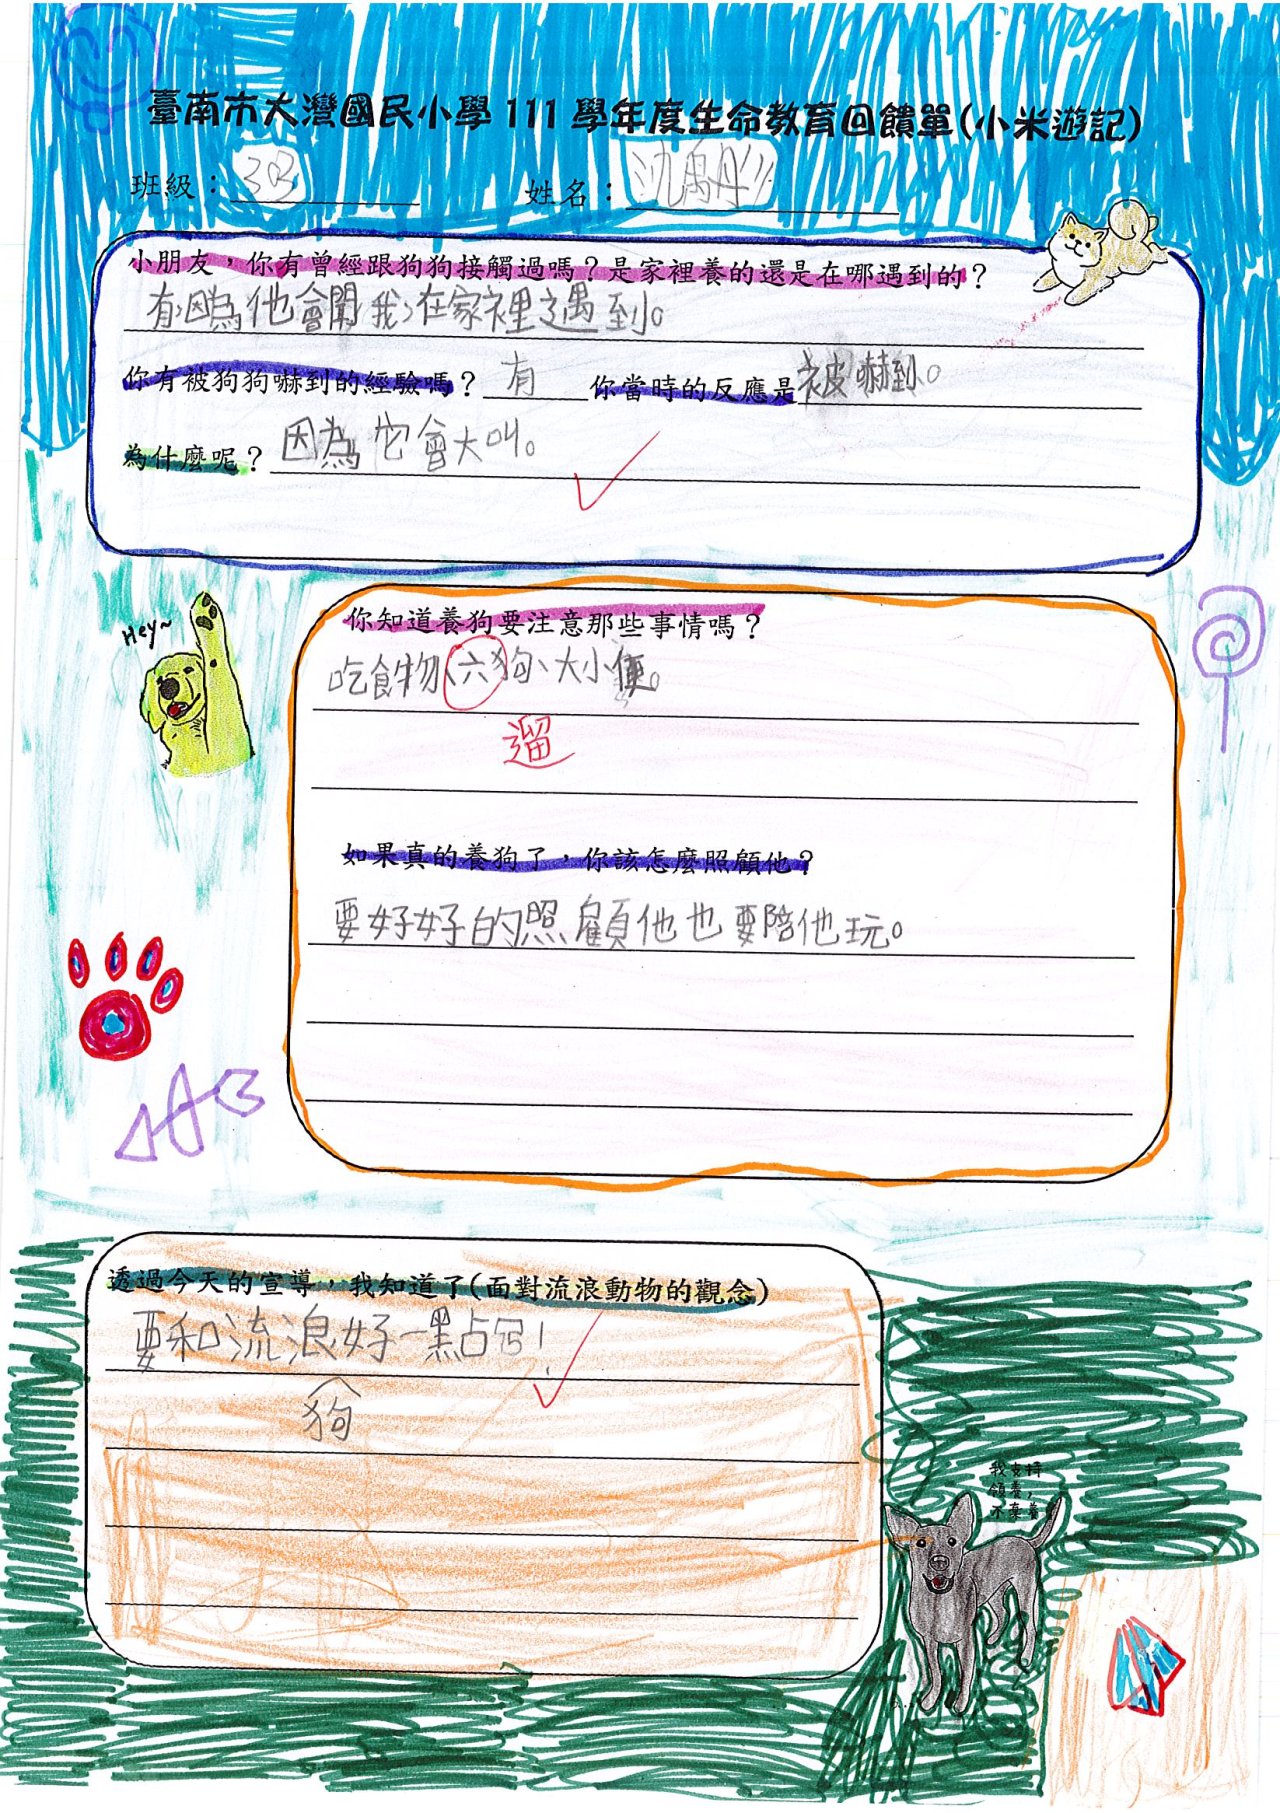 臺南市大灣國民小學 111 學年度生命教育回饋單(小米遊記)
班級：303 姓名：沈禹彤
小朋友，你有曾經跟狗狗接觸過嗎？是家裡養的還是在哪遇到的？
有因為他會聞我在家裡遇到。
你有被狗狗嚇到的經驗嗎？有 你當時的反應是被嚇到。
為什麼呢？因為它會大叫。
Hey~
你知道養狗要注意那些事情嗎？
吃食物、六狗、大小便。
遛
如果真的養狗了，你該怎麼照顧他？
要好好的照顧他也要陪他玩。
透過今天的宣導，我知道了(面對流浪動物的觀念)
要和流浪好一點ㄎ！
狗
我支持
領養，
不棄養